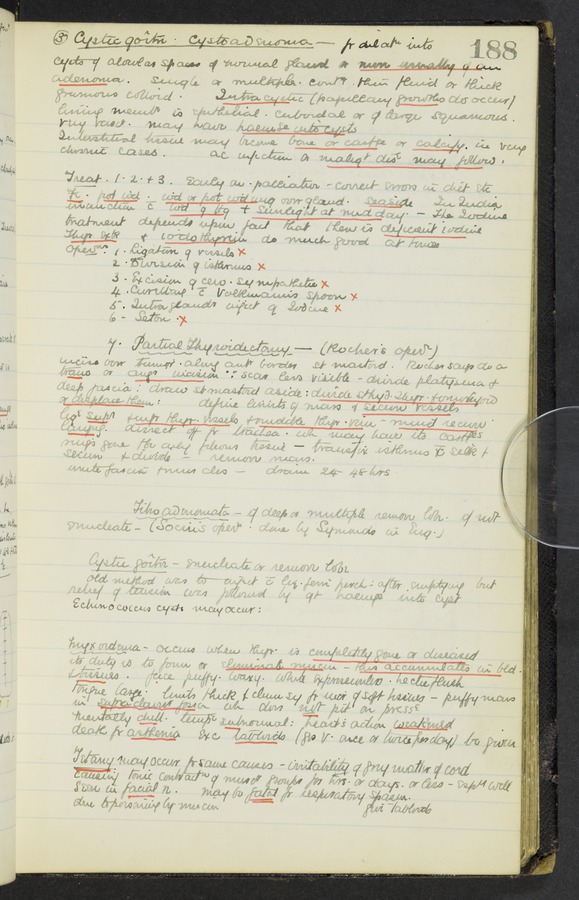 188
(3) Cystic goitre. Cystoadenoma — fr dilatn into
cysts of alveolar spaces of normal gland or more usually of an
adenoma. Single or multiple. cont. thin fluid or thick
grumous colloid. Intracystic (papillary growths do occur)
lining memb is epithelial. cuboidal or if large squamous.
very vasc. may have haemge into cysts
Interstitial tissue may become bone or cartge or calcify. in very
chronic cases. ac infection or maligt dis. may follow.
Treat. 1. 2. + 3. Early as palliative - correct errors in diet etc
Fe. pot iod. iod or pot iod ung over gland. Seaside In India
inunction c iod of Hg + sunlight at midday - The Iodine
treatment depends upon fact that there is deficient iodine
Thyr extr & iodothyrin do much good at times
Opens. 1. Ligation of vessels x
2. Division of isthmus x
3. Excision of cerv. sympathetic x
4. Curetting c Volkmann's spoon x
5. Intra glandr inject of Iodine x
6 - Seton. x
7. Partial Thyroidectomy — (Kocher's opern)
incise over tumor along ant border st mastoid. Kocher says do a
trans or angr incision: scar less visible - divide platysma &
deep fascia: draw st mastoid aside: divide sthyd. sthyr + omohyoid
or displace them: define limits of mass & secure vessels
ligt supr + infr thyr. vessels + middle thyr. vein - mind recurr
laryng. Dissect off fr trachea. wh may have its cartges
rings gone & be only fibrous tissue - transfix isthmus c silk &
secure & divide - remove mass.
unite fascia + muscles - drain 24 48 hrs
Fibro adenomata - if deep or multiple remove lobe. if not
enucleate - (Socin's opern done by Symonds in Eng.)
Cystic goitre - enucleate or remove lobe
old method was to inject c liq. ferri perch: after emptying but
relief of tension was followed by gt haemge into cyst
Echinococcus cysts may occur:
Myxoedema - occurs when thyr. is completely gone or diseased
its duty is to form or eliminate mucin - this accumulates in bld.
& tissues. Face puffy. waxy. white expressionless. hectic flush
Tongue large. limbs thick & clumsy fr incr of sqt tissues - puffy mass
in supra-clavicr fossa wh does not pit on press.
mentally dull. temp subnormal: heart's action weakened
death fr asthenia Exc tabloids (grs V. once or twice per day) be given
Tetany may occur fr same causes - irritability of grey matter of cord
causing tonic contractn of muscr groups for hrs. or days. or less - esply well
seen in facial n. may be fatal fr respiratory spasm.
due to poisoning by mucin give tabloids